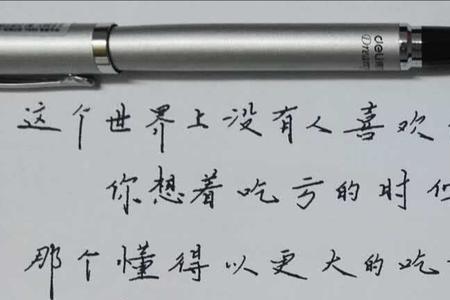 deli
Dream
这个世界上没有人喜欢
你想着吃亏的时
那个懂得以更大的吃